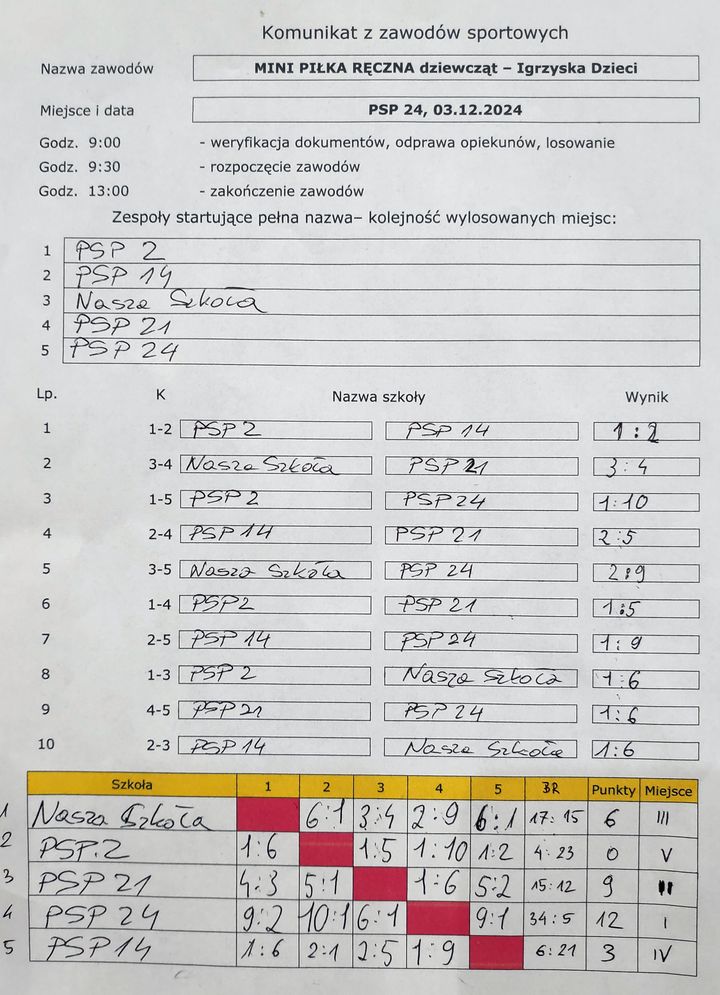 Komunikat z zawodów sportowych
Nazwa zawodów MINI PIŁKA RĘCZNA dziewcząt – Igrzyska Dzieci
Miejsce i data PSP 24, 03.12.2024
Godz. 9:00 - weryfikacja dokumentów, odprawa opiekunów, losowanie
Godz. 9:30 - rozpoczęcie zawodów
Godz. 13:00 - zakończenie zawodów
Zespoły startujące pełna nazwa– kolejność wylosowanych miejsc:
1 PSP 2
2 PSP 14
3 Nasza Szkoła
4 PSP 21
5 PSP 24
Lp. K Nazwa szkoły Wynik
1 1-2 PSP 2 PSP 14 1:2
2 3-4 Nasza Szkoła PSP 21 3:4
3 1-5 PSP 2 PSP 24 1:10
4 2-4 PSP 14 PSP 21 2:5
5 3-5 Nasza Szkoła PSP 24 2:9
6 1-4 PSP 2 PSP 21 1:5
7 2-5 PSP 14 PSP 24 1:9
8 1-3 PSP 2 Nasza Szkoła 1:6
9 4-5 PSP 21 PSP 24 1:6
10 2-3 PSP 14 Nasza Szkoła 1:6
Szkoła 1 2 3 4 5 BR Punkty Miejsce
1 Nasza Szkoła 6:1 3:4 2:9 6:1 17:15 6 III
2 PSP.2 1:6 1:5 1:10 1:2 4:23 0 V
3 PSP 21 4:3 5:1 1:6 5:2 15:12 9 II
4 PSP 24 9:2 10:1 6:1 9:1 34:5 12 I
5 PSP 14 1:6 2:1 2:5 1:9 6:21 3 IV